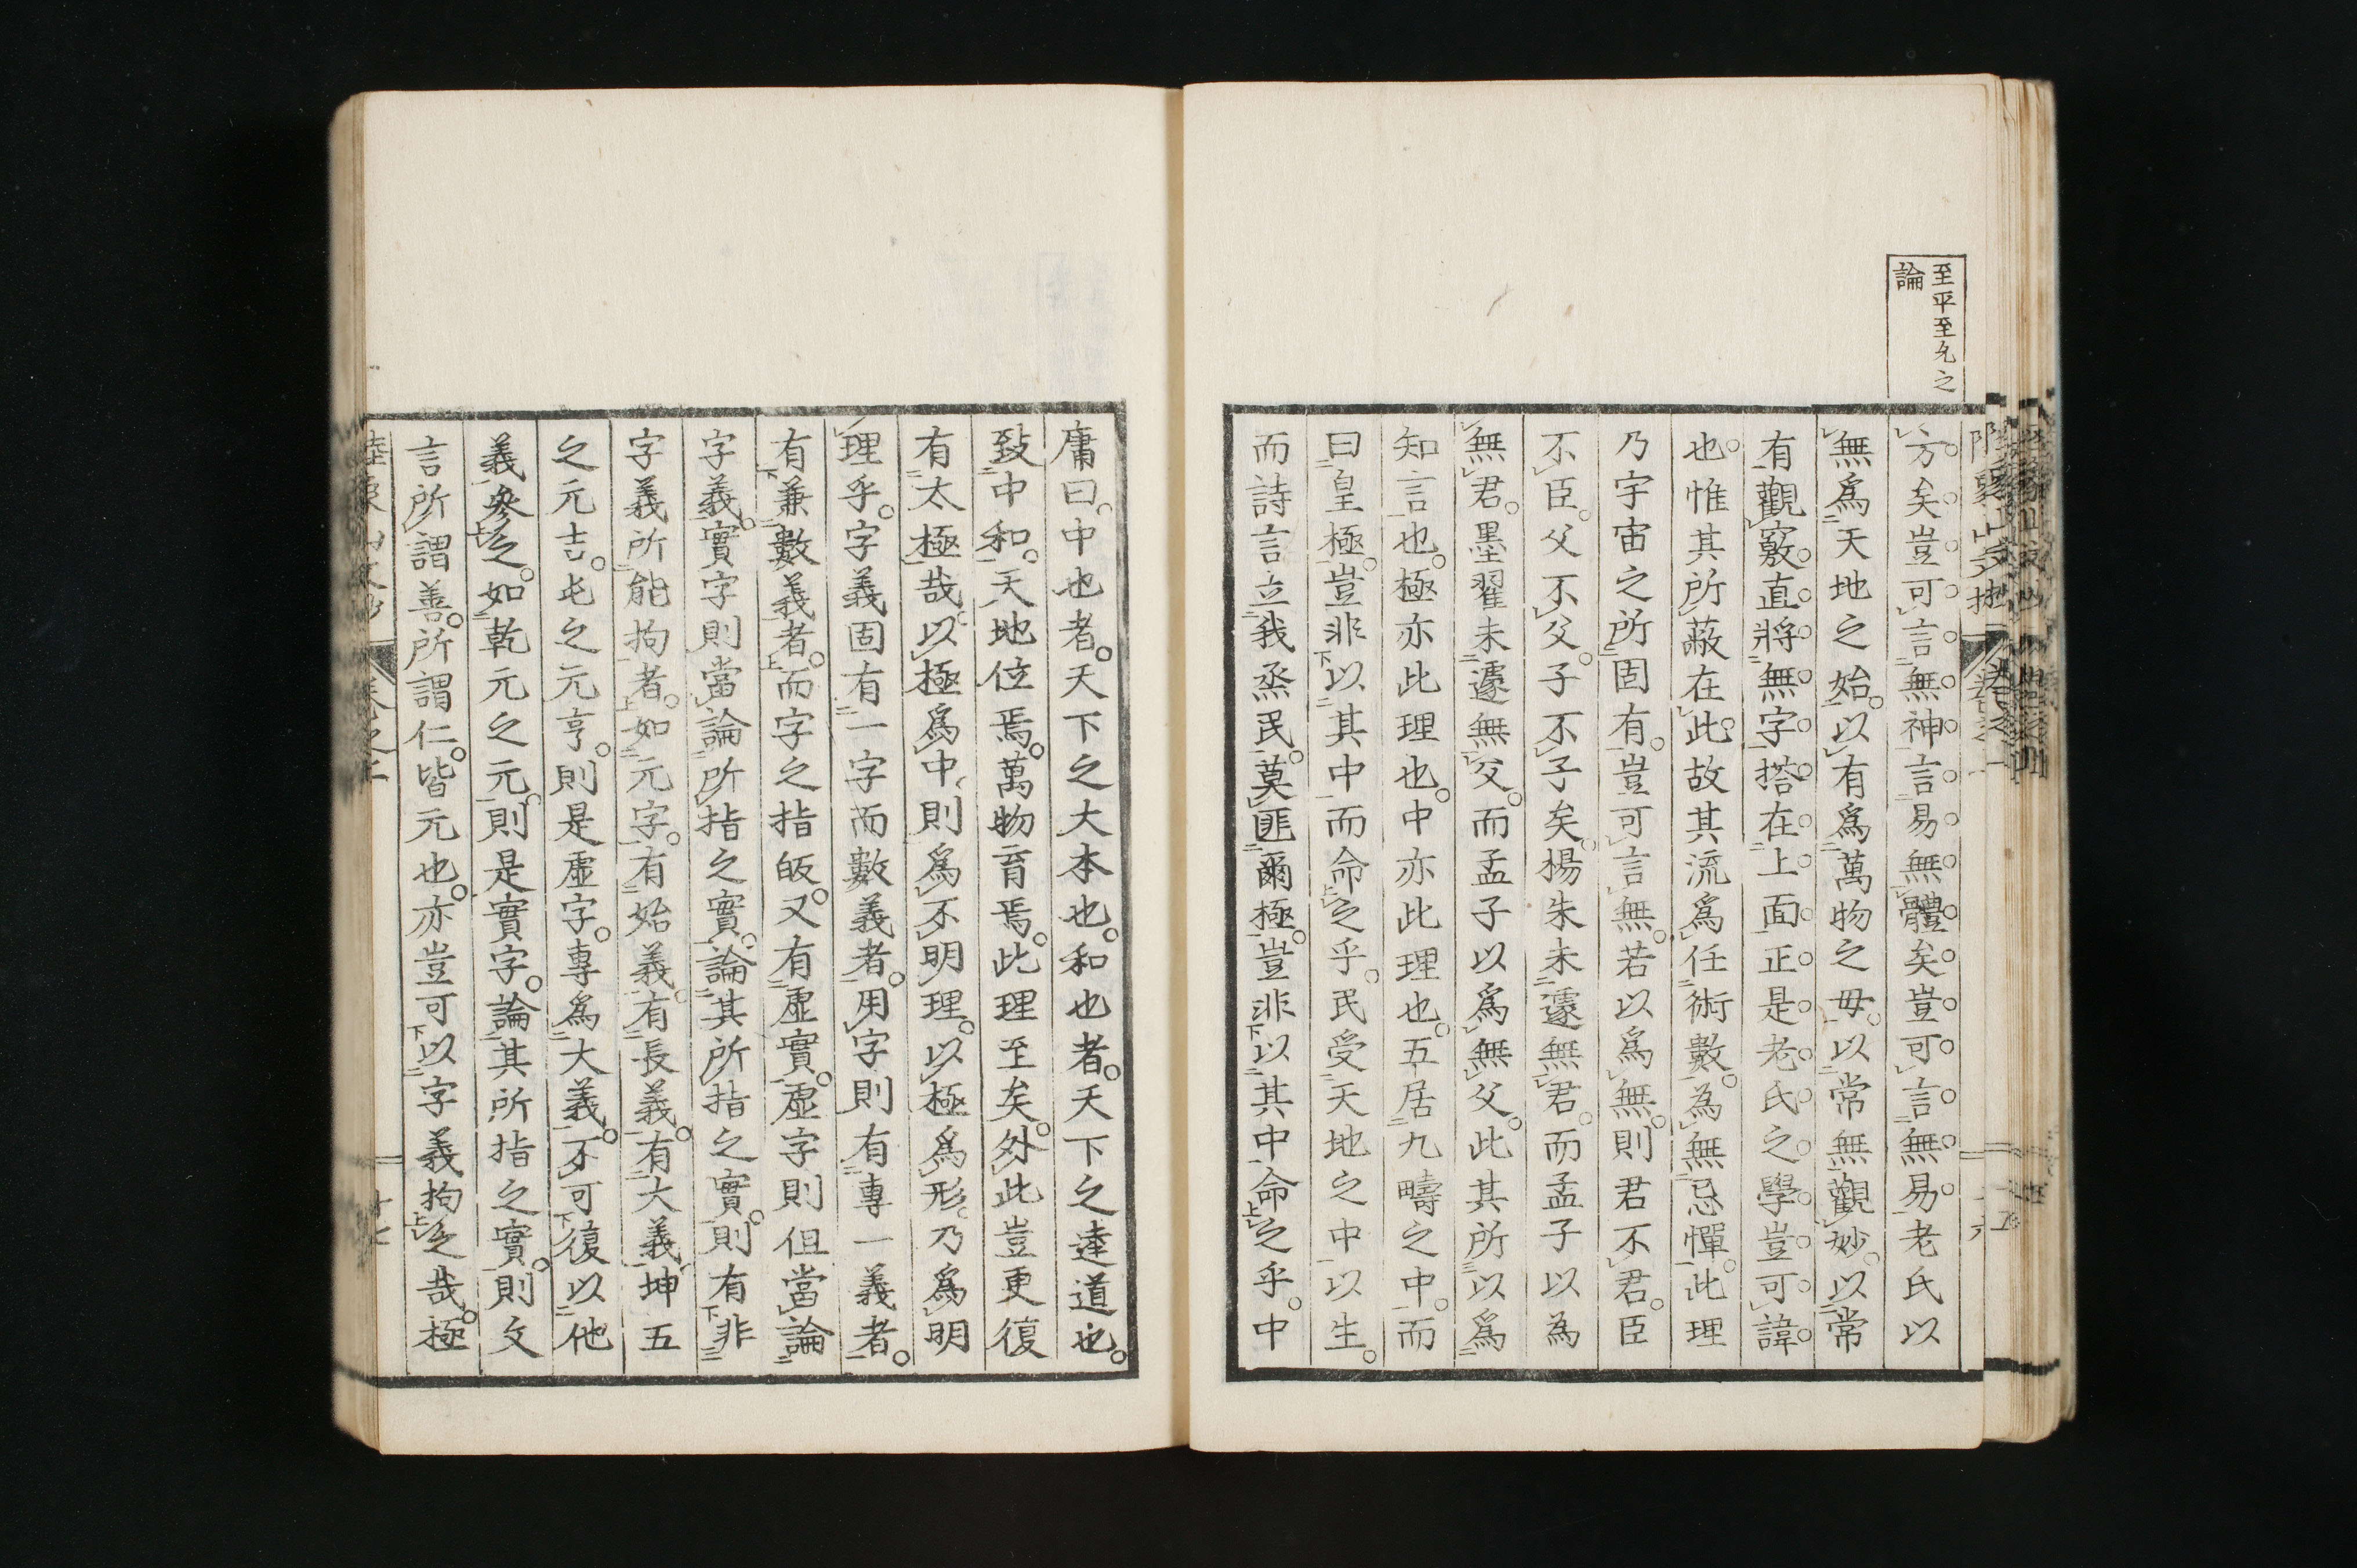 至平至允之
論
方矣豈可言無神言易無體矣豈可言無易老氏以
無爲天地之始以有爲萬物之母以常無觀妙以常
有觀竅直將無字搭在上面正是老氏之學豈可諱
也惟其所蔽在此故其流爲任術數為無忌憚此理
乃宇宙之所固有豈可言無若以爲無則君不君臣
不臣父不父子不子矣楊朱未遽無君而孟子以為
無君墨翟未遽無父而孟子以爲無父此其所以爲
知言也極亦此理也中亦此理也五居九疇之中而
曰皇極豈非以其中而命之乎民受天地之中以生
而詩言立我烝民莫匪爾極豈非以其中命之乎中
庸曰中也者天下之大本也和也者天下之達道也
致中和天地位焉萬物育焉此理至矣外此豈更復
有太極哉以極爲中則爲不明理以極爲形乃爲明
理乎字義固有一字而數義者用字則有專一義者
有兼數義者而字之指皈又有虛實虛字則但當論
字義實字則當論所指之實論其所指之實則有非
字義所能拘者如元字有始義有長義有大義坤五
之元吉屯之元亨則是虛字專爲大義不可復以他
義參之如乾元之元則是實字論其所指之實則文
言所謂善所謂仁皆元也亦豈可以字義拘之哉極